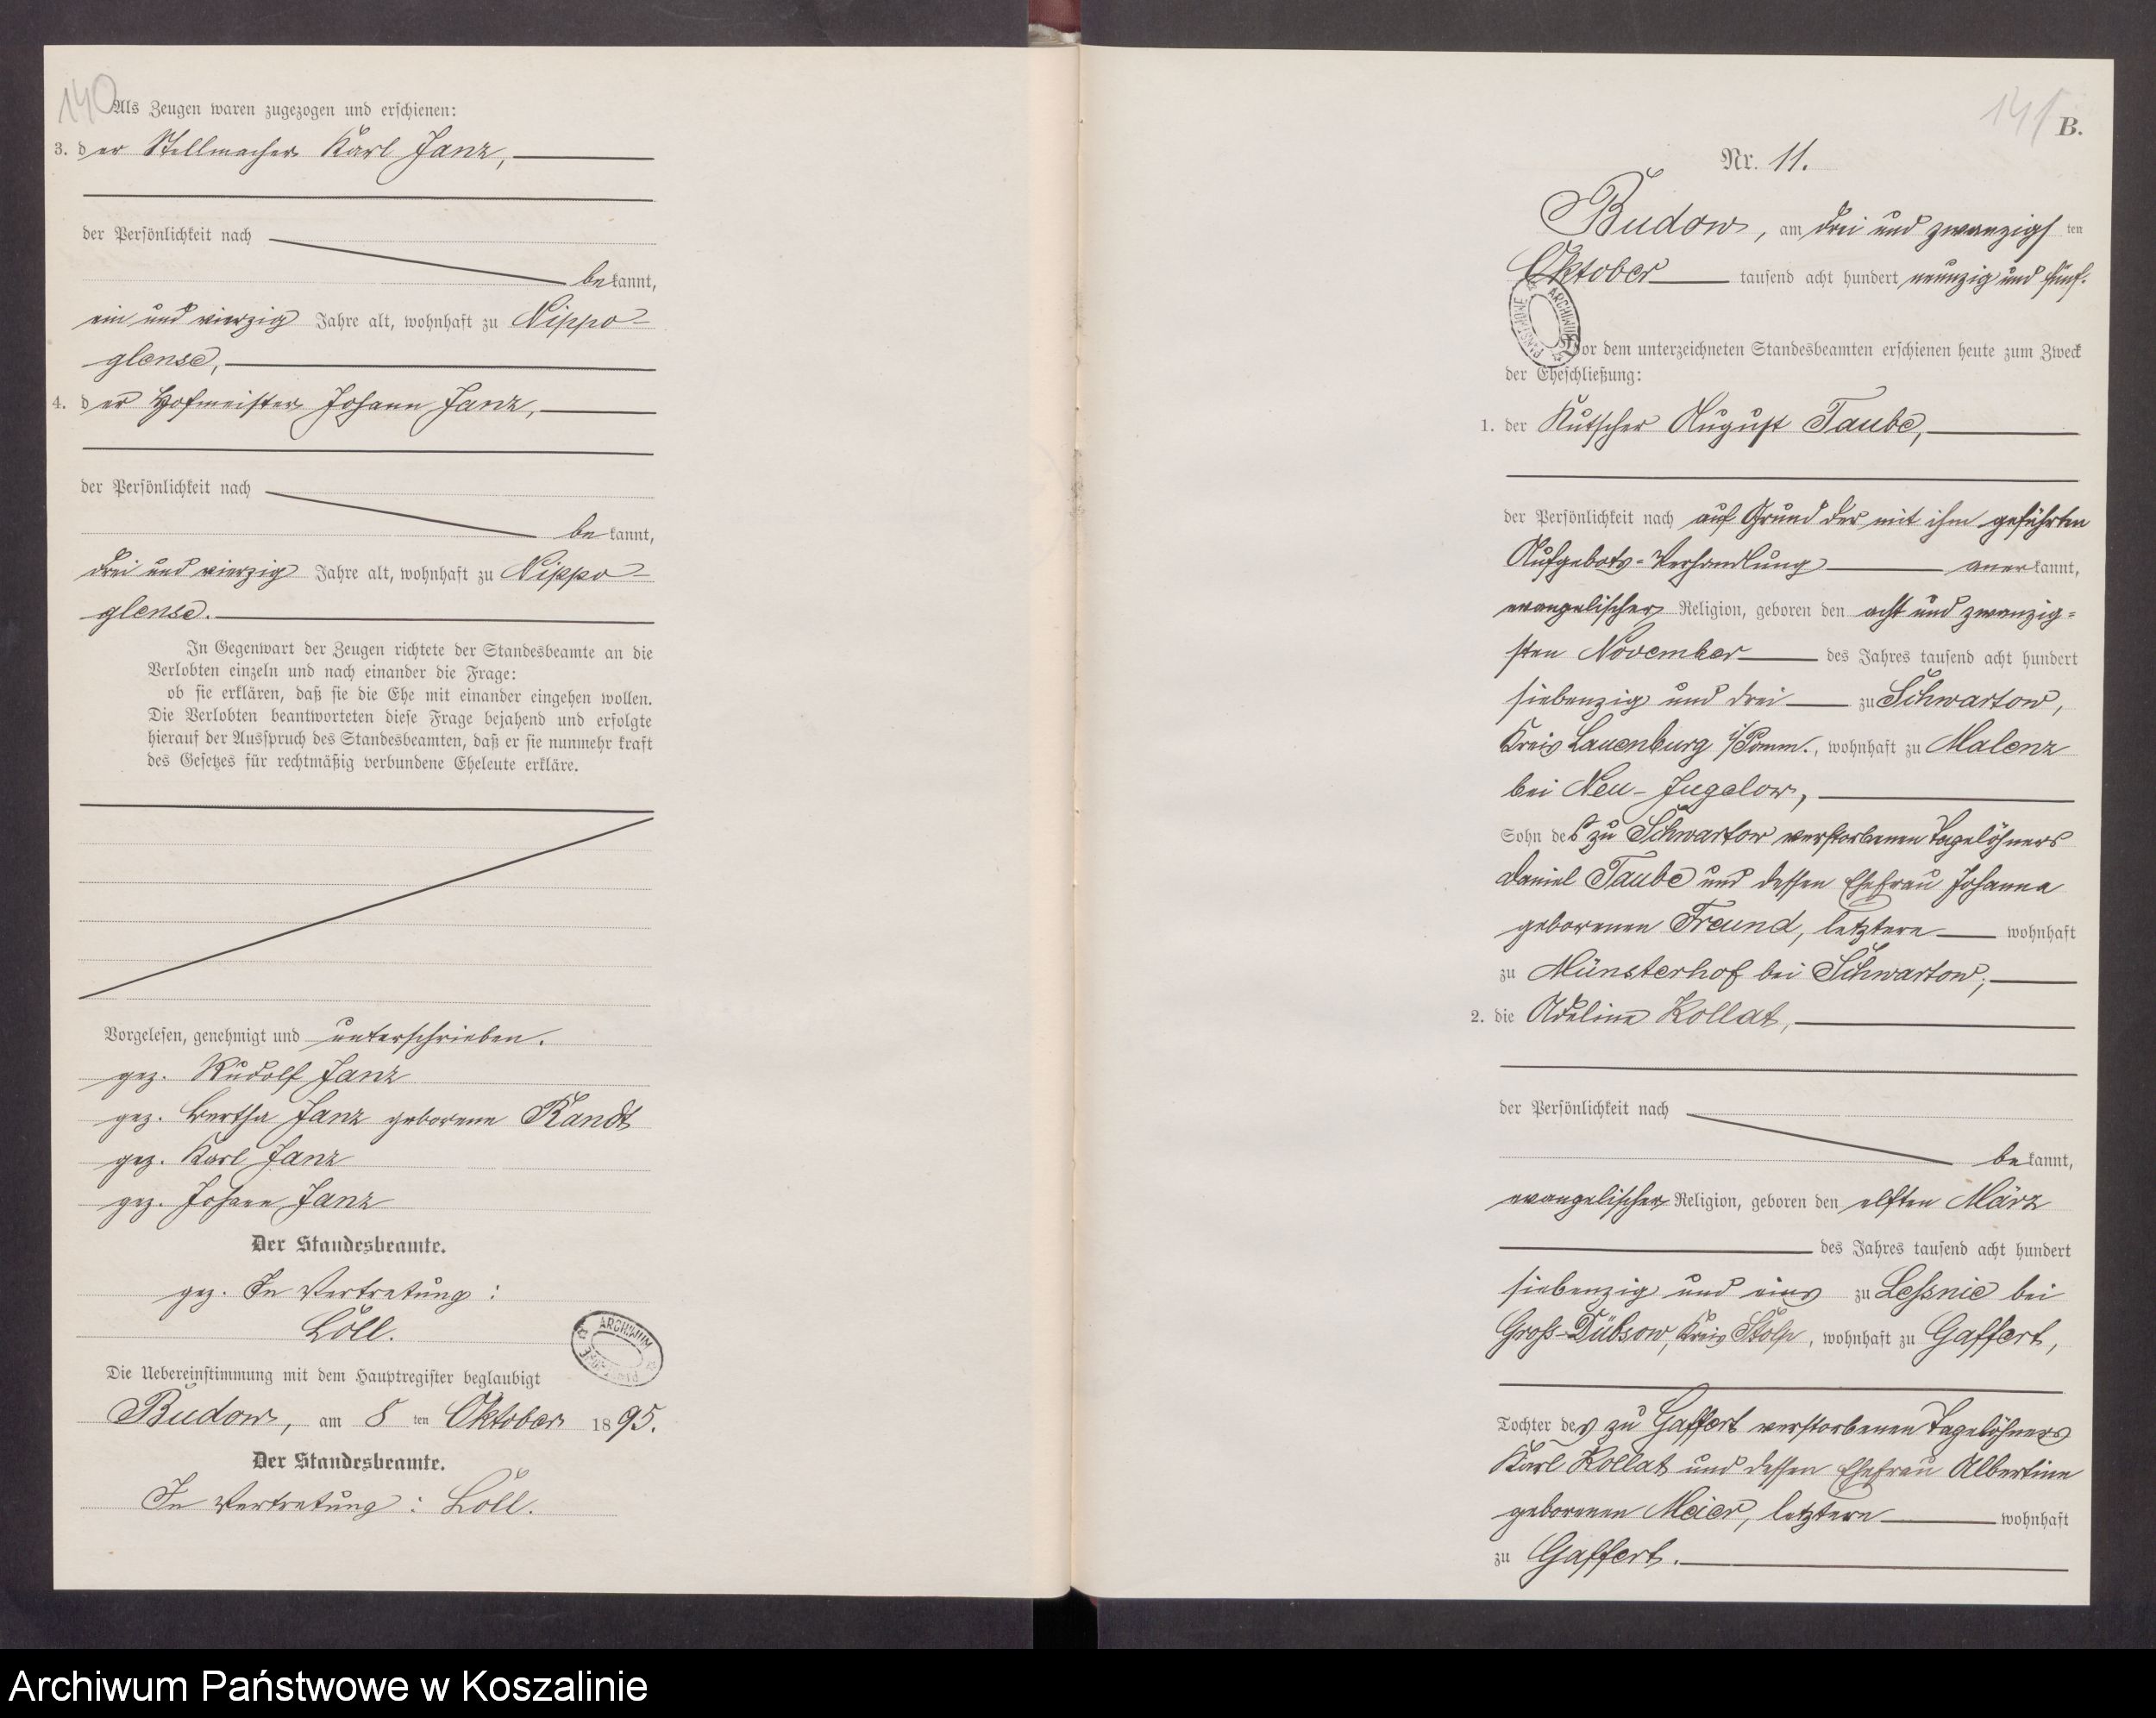 140
Als Zeugen waren zugezogen und erschienen:
3. der Stellmacher Karl Janz,
der Persönlichkeit nach
bekannt,
ein und vierzig Jahre alt, wohnhaft zu Nippo-
glense,
4. der Hofmeister Johann Janz,
der Persönlichkeit nach
bekannt,
drei und vierzig Jahre alt, wohnhaft zu Nippo-
glense.
In Gegenwart der Zeugen richtete der Standesbeamte an die
Verlobten einzeln und nach einander die Frage:
ob sie erklären, daß sie die Ehe mit einander eingehen wollen.
Die Verlobten beantworteten diese Frage bejahend und erfolgte
hierauf der Ausspruch des Standesbeamten, daß er sie nunmehr kraft
des Gesetzes für rechtmäßig verbundene Eheleute erkläre.
Vorgelesen, genehmigt und unterschrieben.
gez. Rudolf Janz
gez. Bertha Janz geborene Kandt
gez. Karl Janz
gez. Johann Janz
Der Standesbeamte.
gez. In Vertretung:
Löll.
ARCHIWUM PAŃSTWOWE
Die Uebereinstimmung mit dem Hauptregister beglaubigt
Budow, am 8 ten Oktober 1895.
Der Standesbeamte.
In Vertretung: Löll.
141
B.
Nr. 11.
Budow, am drei und zwanzigsten
Oktober tausend acht hundert neunzig und fünf.
ARCHIWUM PAŃSTWOWE
Vor dem unterzeichneten Standesbeamten erschienen heute zum Zweck
der Eheschließung:
1. der Kutscher August Taube,
der Persönlichkeit nach auf Grund der mit ihm geführten
Aufgebots-Verhandlung anerkannt,
evangelischer Religion, geboren den acht und zwanzig-
sten November des Jahres tausend acht hundert
siebenzig und drei zu Schwartow,
Kreis Lauenburg i/Pomm., wohnhaft zu Malenz
bei Neu-Jugelow,
Sohn des zu Schwartow verstorbenen Tagelöhners
Daniel Taube und dessen Ehefrau Johanna
geborenen Freund, letztere wohnhaft
zu Münsterhof bei Schwartow;
2. die Adeline Kollat,
der Persönlichkeit nach
bekannt,
evangelischer Religion, geboren den elften März
des Jahres tausend acht hundert
siebenzig und eins zu Lessnie bei
Gross-Dübsow, Kreis Stolp, wohnhaft zu Gaffert,
Tochter des zu Gaffert verstorbenen Tagelöhners
Karl Kollat und dessen Ehefrau Albertine
geborenen Meier, letztere wohnhaft
zu Gaffert.
Archiwum Państwowe w Koszalinie